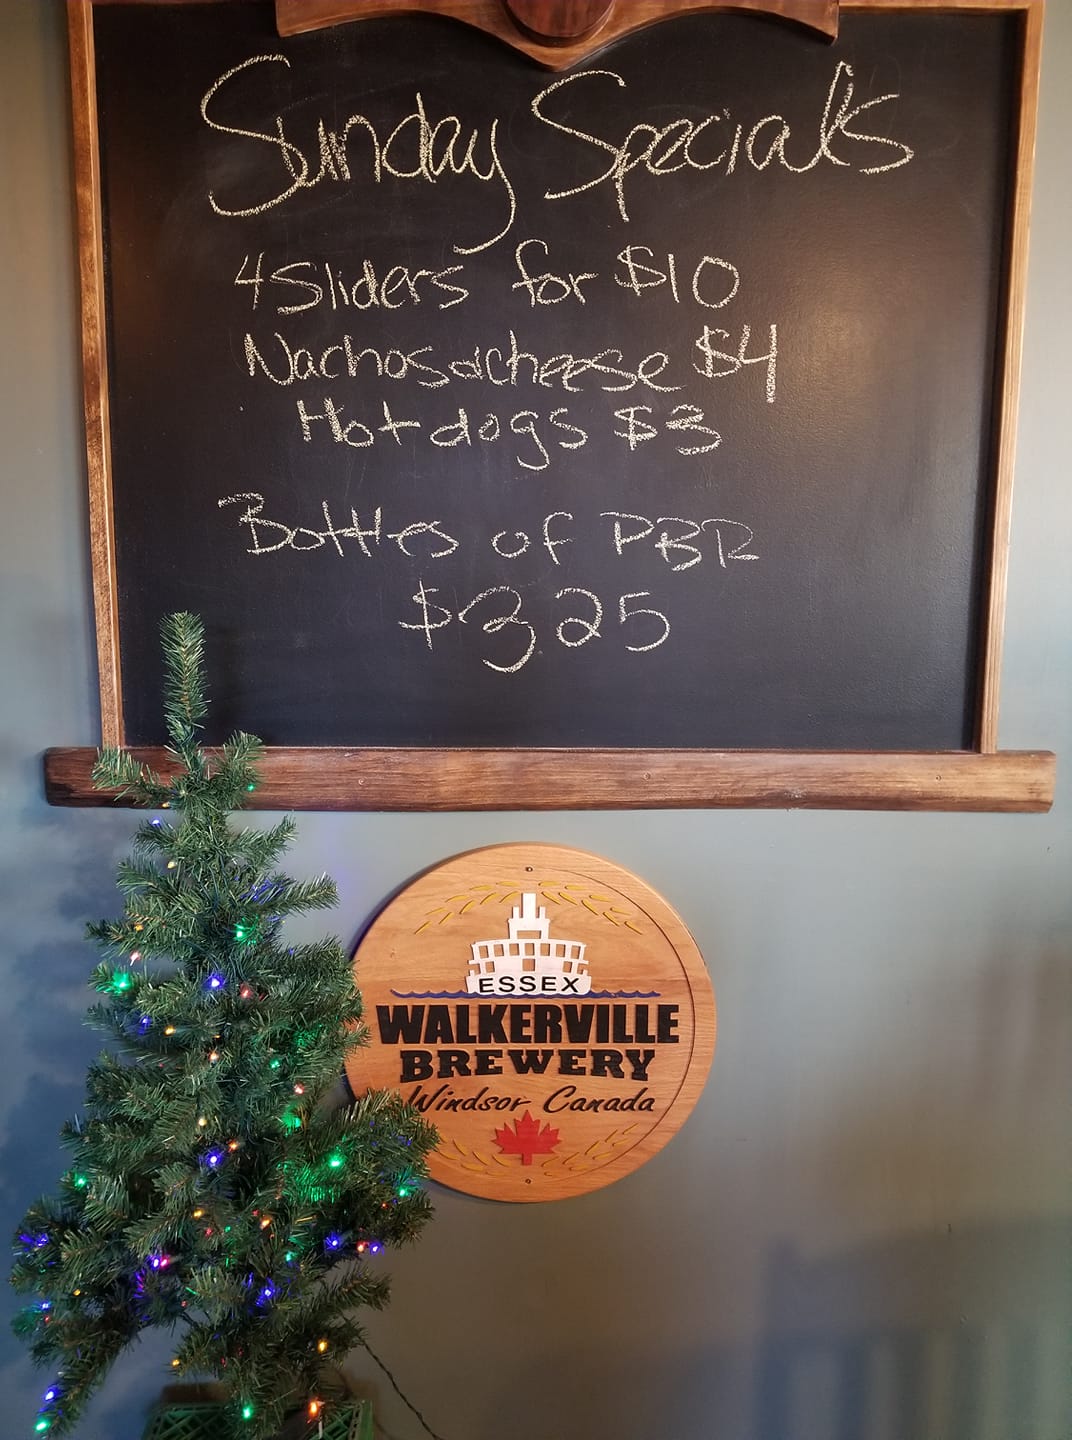 Sunday Specials
4 Sliders for $10
Nachos & cheese $4
Hotdogs $3
Bottles of PBR
$3.25
ESSEX
WALKERVILLE
BREWERY
Windsor Canada